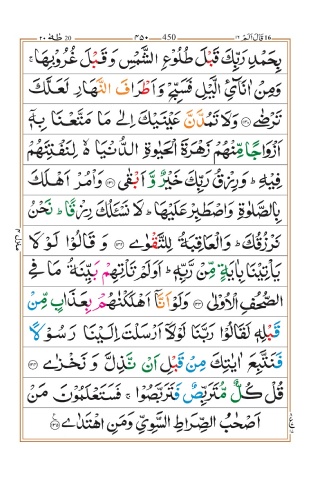 طٰهٰ 20 ٢٠ ٤٥٠ 450 قَالَ اَلَمْ 16 ١٦
بِحَمْدِ رَبِّكَ قَبْلَ طُلُوْعِ الشَّمْسِ وَقَبْلَ غُرُوْبِهَا ۚ
وَمِنْ اٰنَآئِ الَّيْلِ فَسَبِّحْ وَاَطْرَافَ النَّهَارِ لَعَلَّكَ
تَرْضٰى ﴿۱۳۰﴾ وَلَا تَمُدَّنَّ عَيْنَيْكَ اِلٰى مَا مَتَّعْنَا بِهٖۤ
اَزْوَاجًا مِّنْهُمْ زَهْرَةَ الْحَيٰوةِ الدُّنْيَا ۙ لِنَفْتِنَهُمْ
فِيْهِ ؕ وَرِزْقُ رَبِّكَ خَيْرٌ وَّاَبْقٰى ﴿۱۳۱﴾ وَاْمُرْ اَهْلَكَ
بِالصَّلٰوةِ وَاصْطَبِرْ عَلَيْهَا ؕ لَا نَسْئَلُكَ رِزْقًا ؕ نَحْنُ
نَرْزُقُكَ ؕ وَالْعَاقِبَةُ لِلتَّقْوٰى ﴿۱۳۲﴾ وَقَالُوْا لَوْ لَا
يَاْتِيْنَا بِاٰيَةٍ مِّنْ رَّبِّهٖ ؕ اَوَلَمْ تَاْتِهِمْ بَيِّنَةُ مَا فِى
الصُّحُفِ الْاُوْلٰى ﴿۱۳۳﴾ وَلَوْ اَنَّاۤ اَهْلَكْنٰهُمْ بِعَذَابٍ مِّنْ
قَبْلِهٖ لَقَالُوْا رَبَّنَا لَوْلَاۤ اَرْسَلْتَ اِلَيْنَا رَسُوْلًا
فَنَتَّبِعَ اٰيٰتِكَ مِنْ قَبْلِ اَنْ نَّذِلَّ وَنَخْزٰى ﴿۱۳۴﴾
قُلْ كُلٌّ مُّتَرَبِّصٌ فَتَرَبَّصُوْا ۚ فَسَتَعْلَمُوْنَ مَنْ
اَصْحٰبُ الصِّرَاطِ السَّوِىِّ وَمَنِ اهْتَدٰى ﴿۱۳۵﴾